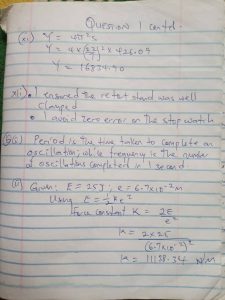 Question 1 contd.
(xi) Y = 4π²s
Y = 4 x (22/7)² x 426.09
Y = 16834.90
xii) • I ensured the retort stand was well
clamped
• I avoid zero error on the stop watch
(i) Period is the time taken to complete an
oscillation, while frequency is the number
of oscillations completed in 1 second.
(ii) Given: E = 25J, e = 6.7x10⁻²m
Using E = ½ke²
Force constant K = 2E/e²
K = 2 x 25/(6.7x10⁻²)²
K = 11138.34 N/m